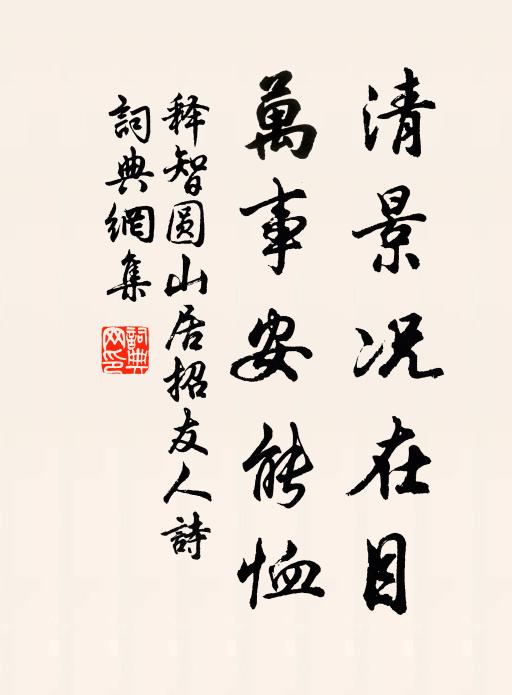 清景况在目
萬事安能恤
释智圆山居招友人詩
詞典網集
詞典網印